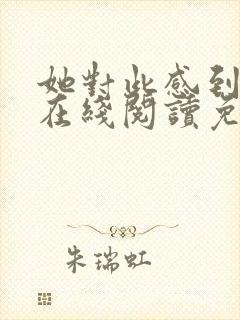 她對此感到
在綫閱讀免
朱瑞虹